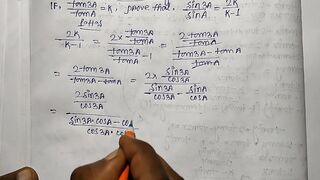 IF, tan3A/tanA = K, prove that, sin3A/sinA = 2K/K-1
2K/K-1 = (2 × tan3A/tanA)/(tan3A/tanA - 1) = (2tan3A/tanA)/((tan3A-tanA)/tanA)
= 2tan3A/(tan3A-tanA) = (2 × sin3A/cos3A)/(sin3A/cos3A - sinA/cosA)
= (2sin3A/cos3A)/((sin3A·cosA - cos)/(cos3A·cos))